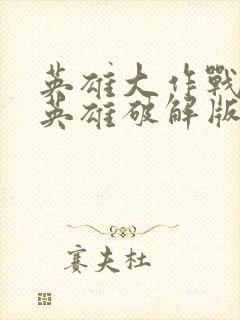 英雄大作戰
英雄破解版
赛夫杜